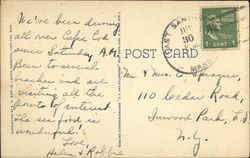 We've been driving
all over Cape Cod
since Saturday A.M.
Been to several
beaches and are
visiting all the
points of interest
The sea food is
wonderful!
Love,
Helen & Robbie
POST CARD
EAST SANDWICH
30
MASS.
1 CENT 1
Mr & Mrs. E. Sprague,
110 Cedar Road,
Inwood Park, L.I.
N.Y.